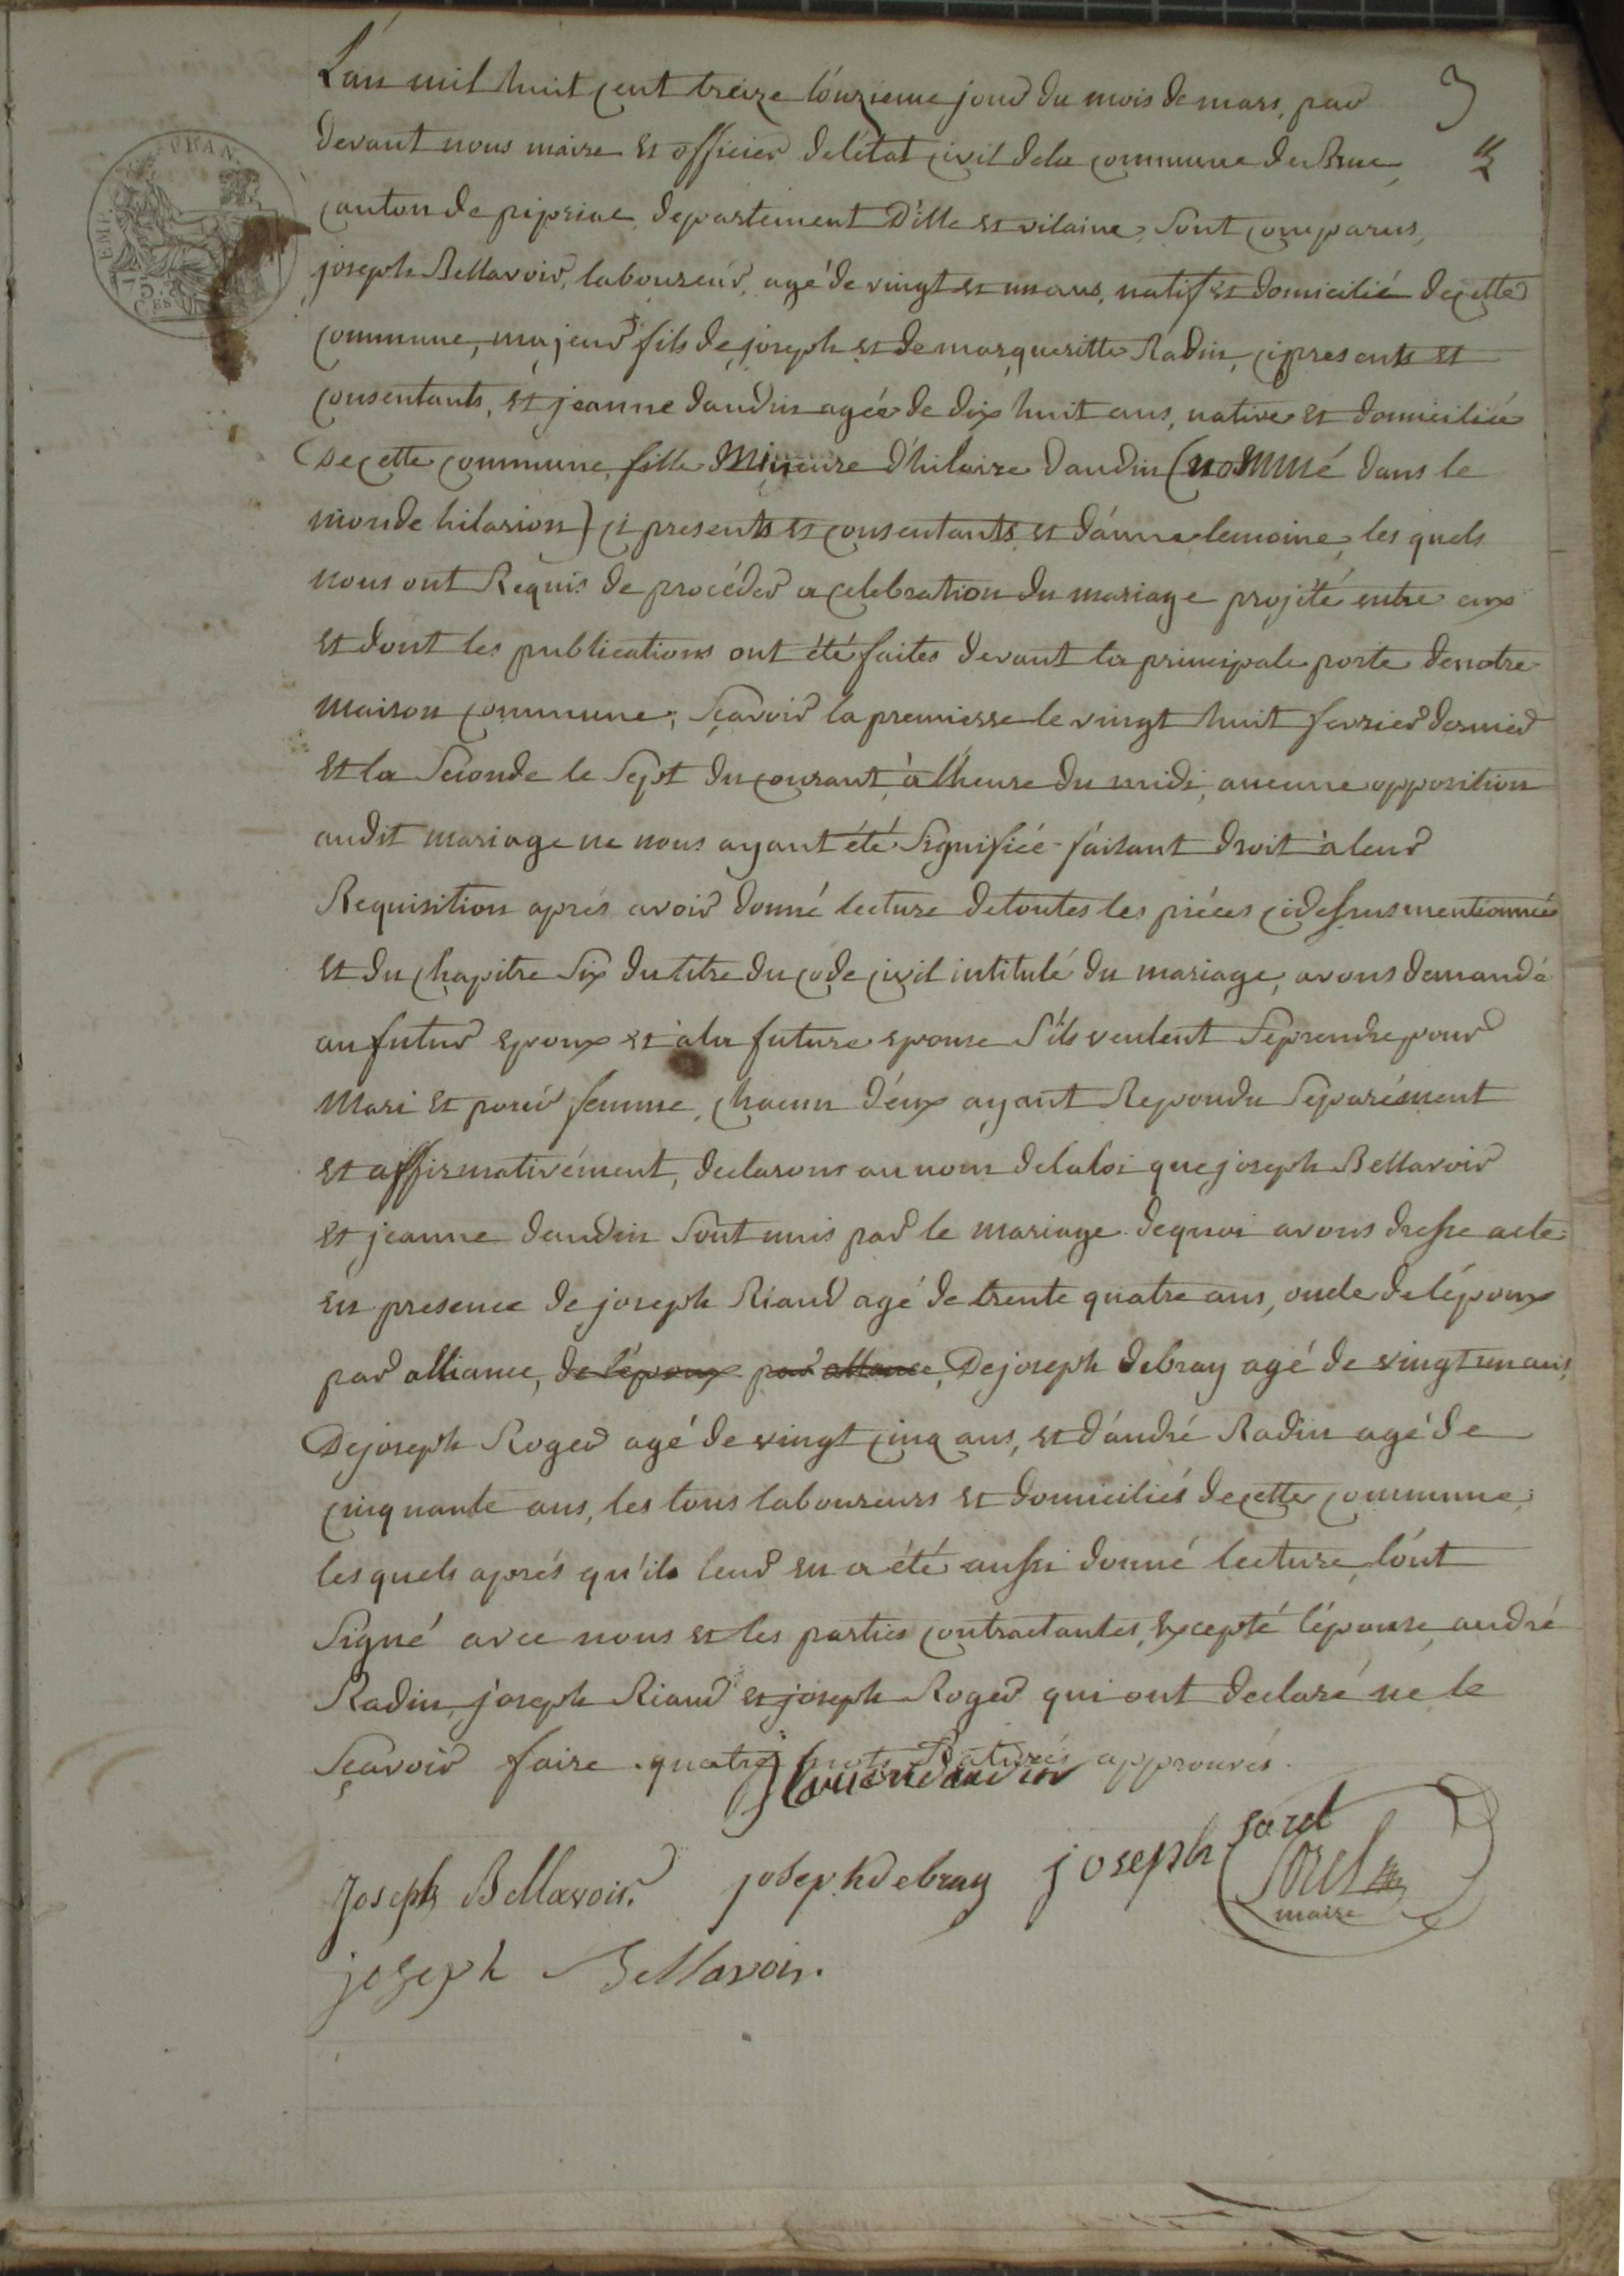 L'an mil huit cent treize l'onzieme jour du mois de mars, par
3
devant nous maire et officier de l'état civil de la commune de Bruc,
canton de pipriac, departement D'ille et vilaine, sont comparus,
joseph Bellavoir, laboureur, agé de vingt et un ans, natif et domicilié de cette
commune, majeur fils de joseph et de margueritte Radin, ci presents et
consentants, et jeanne daudin agée de dix huit ans, native et domiciliée
de cette commune, fille Mineure d'hilaire daudin (nommé dans le
monde hilarion) ci presents et consentants et d'anne lemoine, les quels
nous ont Requis de procéder a celebration du mariage projété entre eux
et dont les publications ont été faites devant la principale porte de notre
maison commune; sçavoir la premierre le vingt huit fevrier dernier
et la seconde le sept du courant, à l'heure du midi, aucune opposition
audit mariage ne nous ayant été signifiée faisant droit à leur
Requisition aprés avoir donné lecture de toutes les piéces cidessus mentionnées
et du chapitre six du titre du code civil intitulé du mariage, avons demandé
au futur epoux et à la future epouse s'ils veulent se prendre pour
mari et pour femme, chacun d'eux ayant Repondu séparément
et affirmativément, declarons au nom de la loi que joseph Bellavoir
et jeanne daudin sont unis par le mariage de quoi avons dresse acte
en presence de joseph Riaud agé de trente quatre ans, oncle de l'époux
par alliance, de l'époux par allance, De joseph debray agé de vingt un ans,
De joseph Roger agé de vingt cinq ans, et d'andré Radin agé de
cinquante ans, les tous laboureurs et domiciliés de cette commune;
les quels aprés qu'ils leur en a été aussi donné lecture, l'ont
signé avec nous et les parties contractantes, excepté l'épouse, andré
Radin, joseph Riaud et joseph Roger qui ont declaré ne le
sçavoir faire. quatre mots Raturés approuvés.
Joseph Bellavoir. joseph debray joseph sorel
Sorel
maire
joseph Bellavoir.